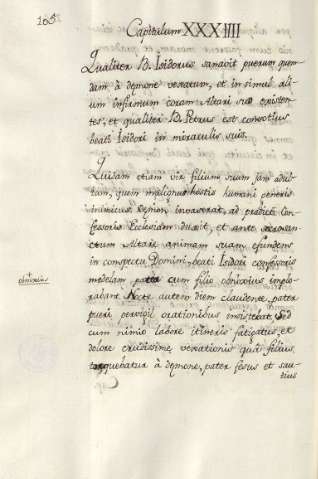 165
Capitulum XXXIIII
Qualiter B. Isidorus sanavit puerum quem
dam à demone vexatum, et in simul ali
um infirmum coram Altari suo existen
tes; et qualiter B. Petrus est consotius
beati Isidori in miraculis suis.
Quidam etiam vir filium suum jam adul
tum, quem malignus hostis humani generis
inimicus Demon invaserat, ad predicti Con
fessoris Ecclesiam duxit, et ante
Altari animam suam efundens
in conspectu Domini, beati Isidori confessoris
medelam cum filio obnixius implo
rabant Nocte autem diem claudente, pater
pueri pervigil orationibus insistebat Sed
cum nimio labore itineris fatigatus, et
dolore crudissime vexationis quâ filius
torquebatur à demone, pater fesus et sau
tius